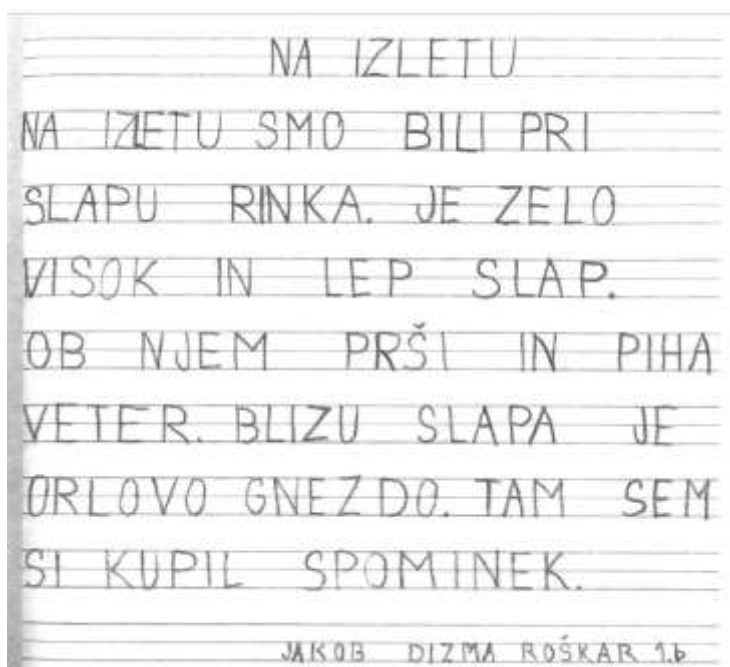 NA IZLETU
NA IZLETU SMO BILI PRI
SLAPU RINKA. JE ZELO
VISOK IN LEP SLAP.
OB NJEM PRŠI IN PIHA
VETER. BLIZU SLAPA JE
ORLOVO GNEZDO. TAM SEM
SI KUPIL SPOMINEK.
JAKOB DIZMA ROŠKAR 1.b